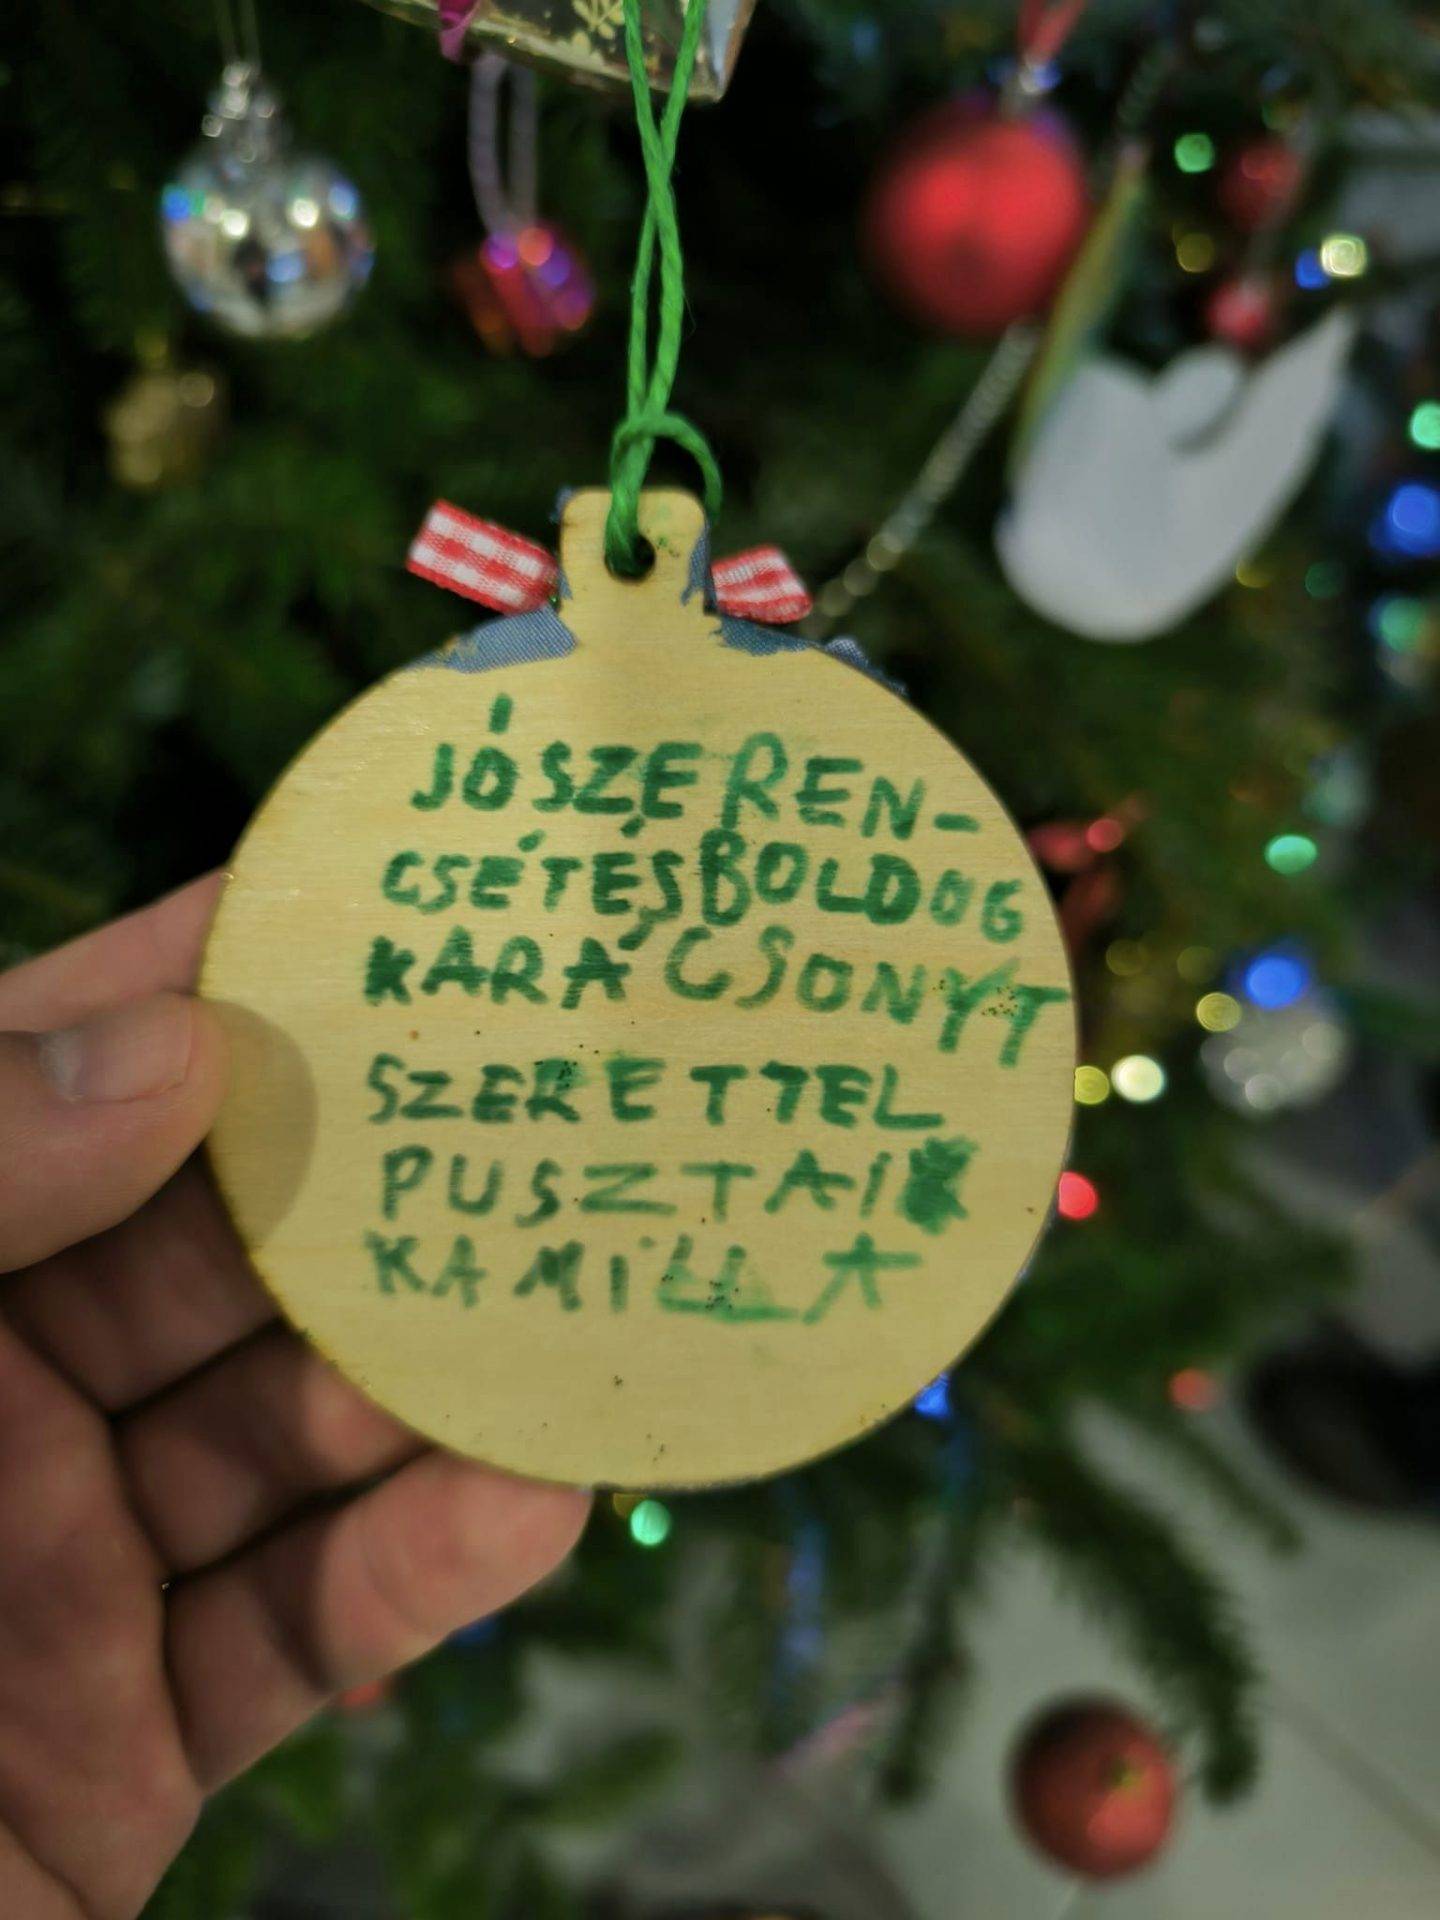 JÓ SZEREN-
CSÉT ÉS BOLDOG
KARÁCSONYT
SZERETTEL
PUSZTAI
KAMILLA